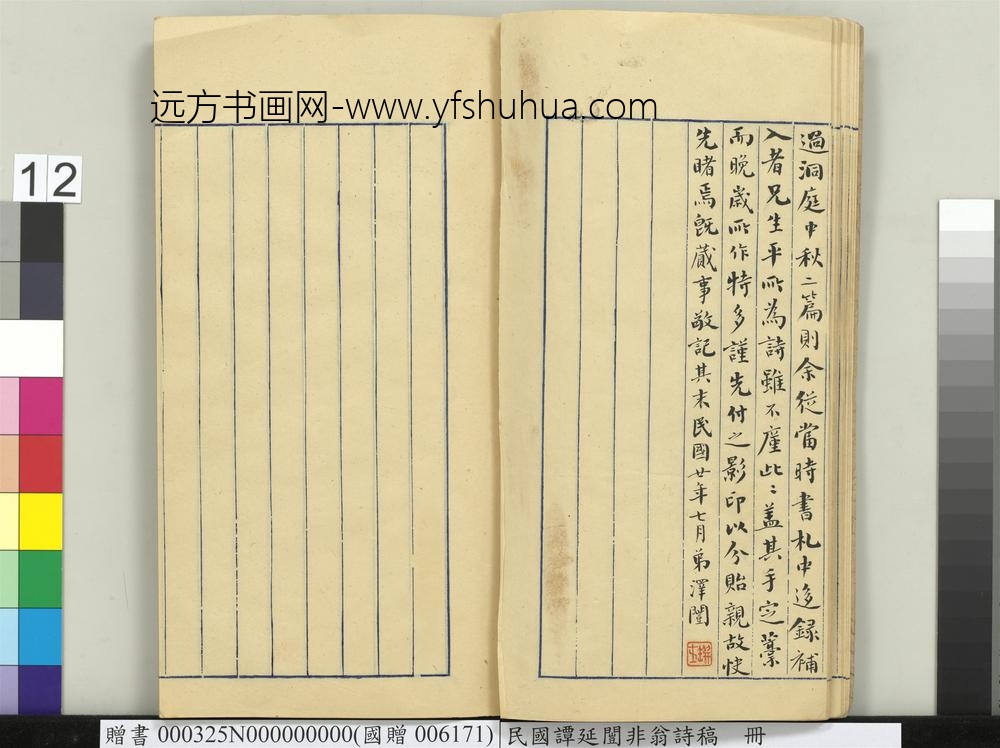 远方书画网-www.yfshuhua.com
12
過洞庭中秋二篇則余從當時書札中迻録補
入者兄生平所為詩雖不廑此此蓋其手定藁
而晚歲所作特多謹先付之影印以分貽親故快
先睹焉既蕆事敬記其末民國廿年七月弟澤闓
贈書 000325N000000000(國贈 006171)
民國譚延闓非翁詩稿 冊